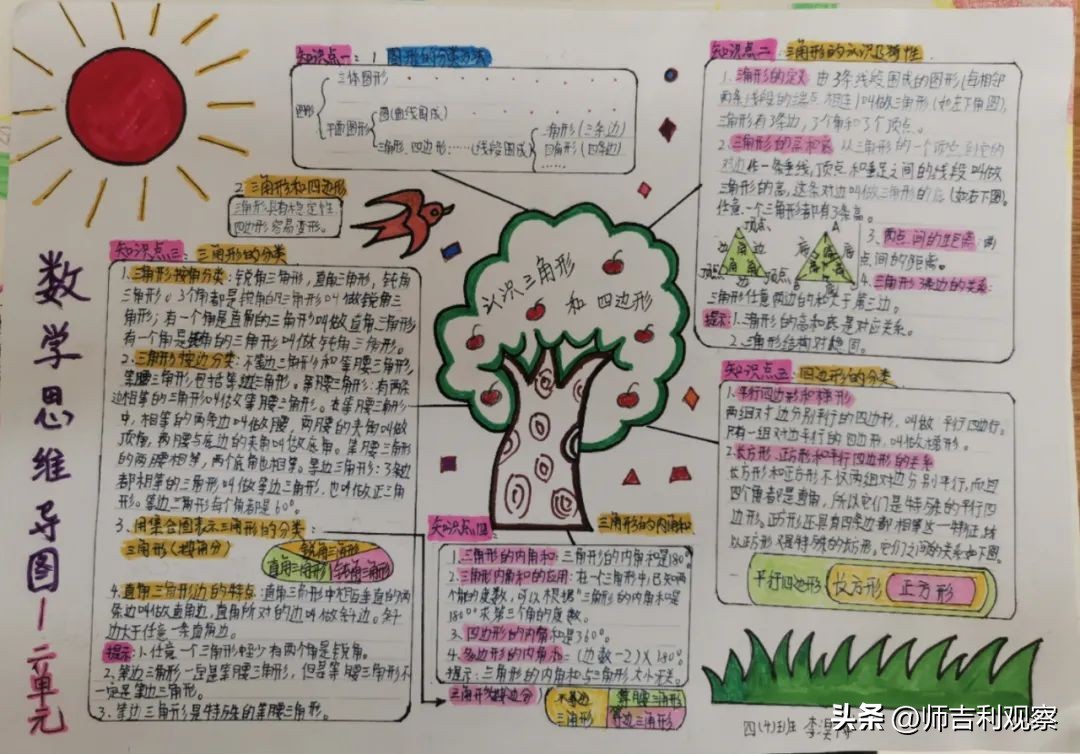 数学思维导图—二单元
知识点一：1 图形的分类方法
图形
立体图形
平面图形
圆(曲线围成)
三角形、四边形……(线段围成)
三角形(三条边)
四角形(四条边)
……
2 三角形和四边形
三角形具有稳定性
四边形容易变形。
知识点二：三角形的认识及特性
1.三角形的定义 由3条线段围成的图形(每相邻
两条线段的端点相连)叫做三角形(如左下角图)，
三角形有3条边，3个角和3个顶点。
2.三角形的高和底 从三角形的一个顶点到它的
对边作一条垂线，顶点和垂足之间的线段叫做
三角形的高，这条对边叫做三角形的底(如右下图)。
任意一个三角形都有3条高。
顶点
边 角 边
角 角
顶点 边 顶点
A
底 高 底
3.两点间的距离：两
点间的距离。
4.三角形3条边的关系：
三角形任意两边的和大于第三边。
提示：1.三角形的高和底是对应关系。
2.三角形结构对稳固。
认识三角形
和 四边形
知识点三：三角形的分类
1.三角形按角分类：锐角三角形，直角三角形，钝角
三角形。3个角都是锐角的三角形叫做锐角三
角形；有一个角是直角的三角形叫做直角三角形
有一个角是钝角的三角形叫做钝角三角形。
2.三角形按边分类：不等边三角形和等腰三角形，
等腰三角形包括等边三角形。等腰三角形：有两条
边相等的三角形叫做等腰三角形。在等腰三角形
中，相等的两条边叫做腰，两腰的夹角叫做
顶角，两腰与底边的夹角叫做底角。等腰三角形
的两腰相等，两个底角也相等。等边三角形：3条边
都相等的三角形叫做等边三角形，也叫做正三角
形。等边三角形每个角都是60°。
3.用集合图表示三角形的分类：
三角形(按角分)
锐角三角形
直角三角形 钝角三角形
4.直角三角形边的特点：直角三角形中相互垂直的两
条边叫做直角边，直角所对的边叫做斜边。斜
边大于任意一条直角边。
提示：1.任意一个三角形至少有两个角是锐角。
2.等边三角形一定是等腰三角形，但是等腰三角形不
一定是等边三角形。
3.等边三角形是特殊的等腰三角形。
知识点四 三角形的内角和
1.三角形的内角和：三角形的内角和是180°
2.三角形内角和的应用：在一个三角形中，已知两
个角的度数，可以根据"三角形的内角和是
180°"求第三个角的度数。
3.四边形的内角和是360°。
4.多边形的内角和=(边数-2)×180°
提示：三角形的内角和与三角形大小无关。
三角形(按边分)
不等边 等腰三角形
三角形 等边三角形
知识点五：四边形的分类
1.平行四边形和梯形
两组对边分别平行的四边形，叫做 平行四边行。
只有一组对边平行的四边形，叫做梯形。
2.长方形、正方形和平行四边形的关系
长方形和正方形不仅两组对边分别平行，而且
四个角都是直角，所以它们是特殊的平行四
边形。正方形还具有四条边都相等这一特征，所
以正方形又是特殊的长方形。它们之间的关系如下图
平行四边形 长方形 正方形
四(4)班 李
头条 @师吉利观察